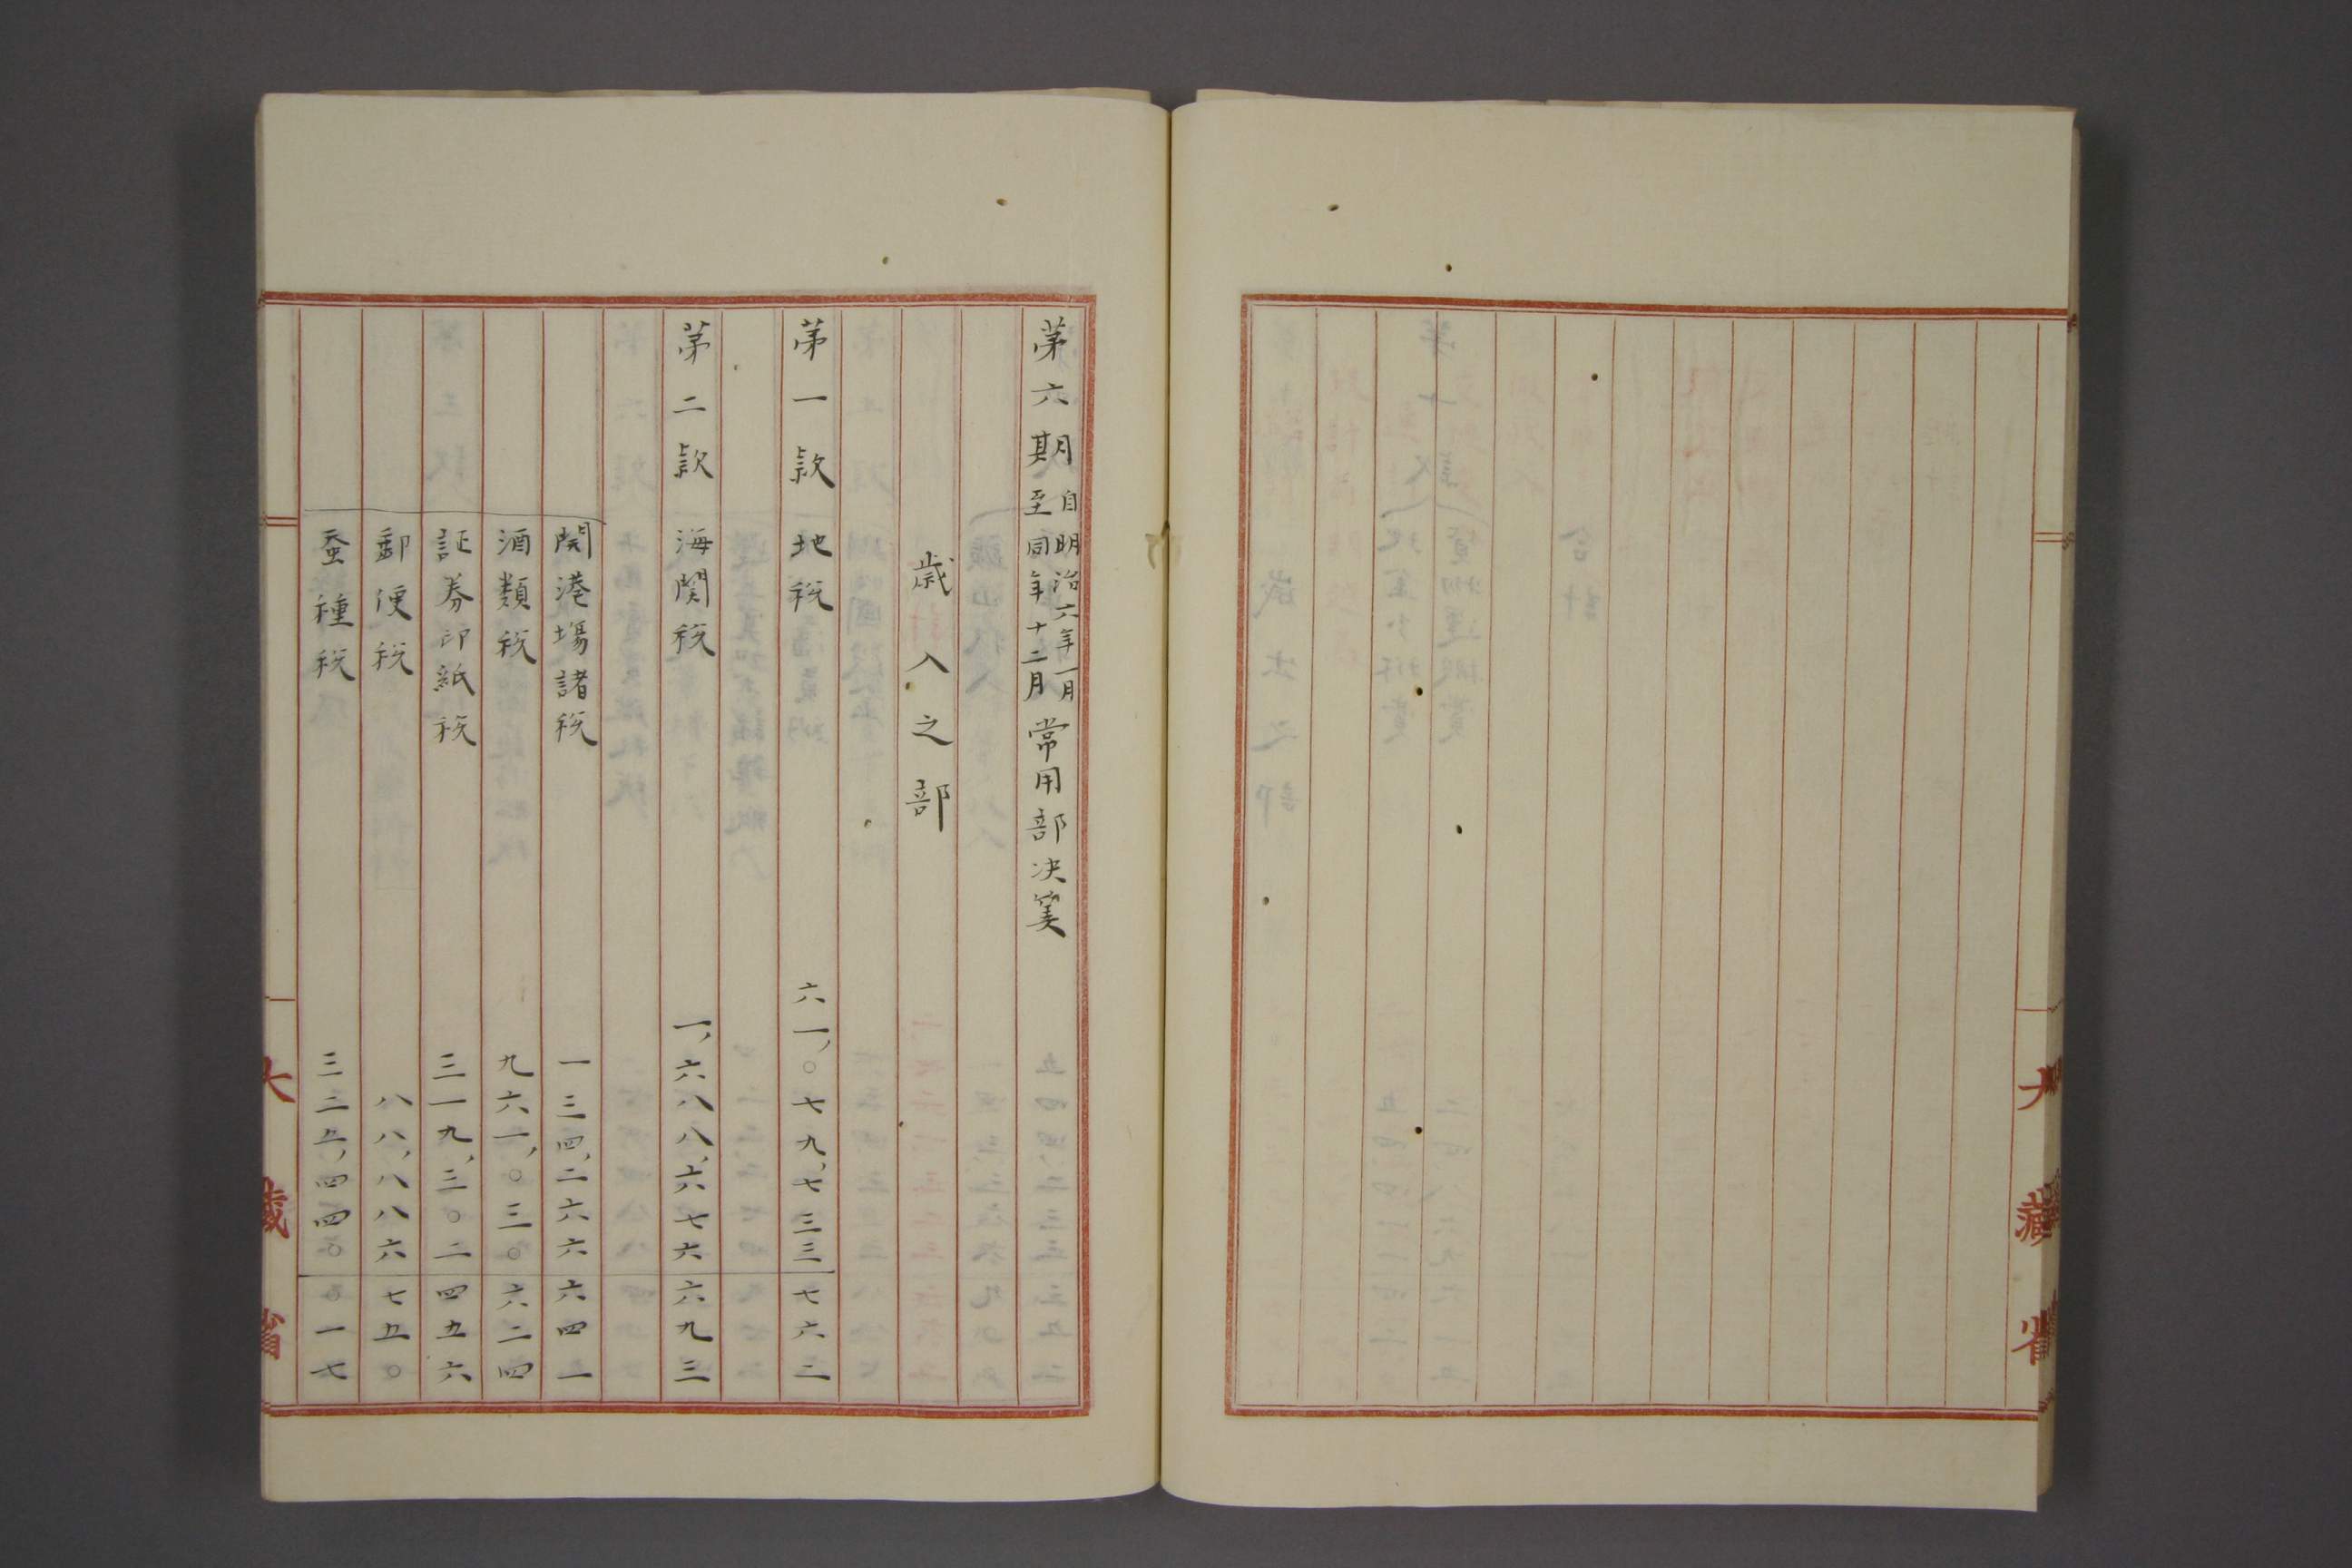 大藏省
第六期自明治六年一月至同年十二月常用部決筭
歳入之部
第一款 地税 六一、〇七九、七三三七六二
第二款 海関税 一、六八八、六七六六九三
開港場諸税 一三四、二六六六四一
酒類税 九六一、〇三〇六二四
証券印紙税 三一九、三〇二四五六
郵便税 八八、八八六七五〇
蚕種税
大藏省